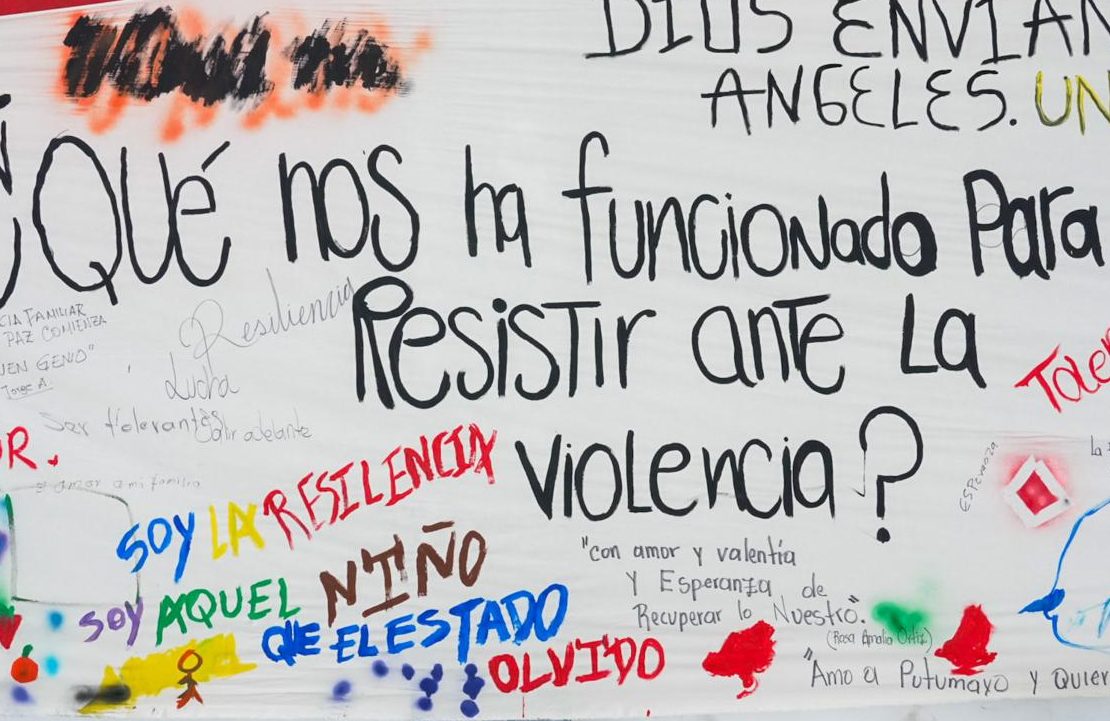 DIOS ENVIAN
ANGELES. UN
¿QUé nos ha funcionado Para
Resistir ante La
violencia?
CIA FAMILIAR
PAZ COMIENZA
EN GENIO"
Jorge A.
Resiliencia
Lucha
Ser tolerantes
Salir adelante
R.
amor a mi familia
Toler
ESPeranza
La
SOY LA RESILENCIA
SOY AQUEL NIÑO
QUE EL ESTADO
OLVIDO
"con amor y valentía
Y Esperanza de
Recuperar lo Nuestro."
(Rosa Amalia Ortiz)
"Amo a Putumayo y Quier